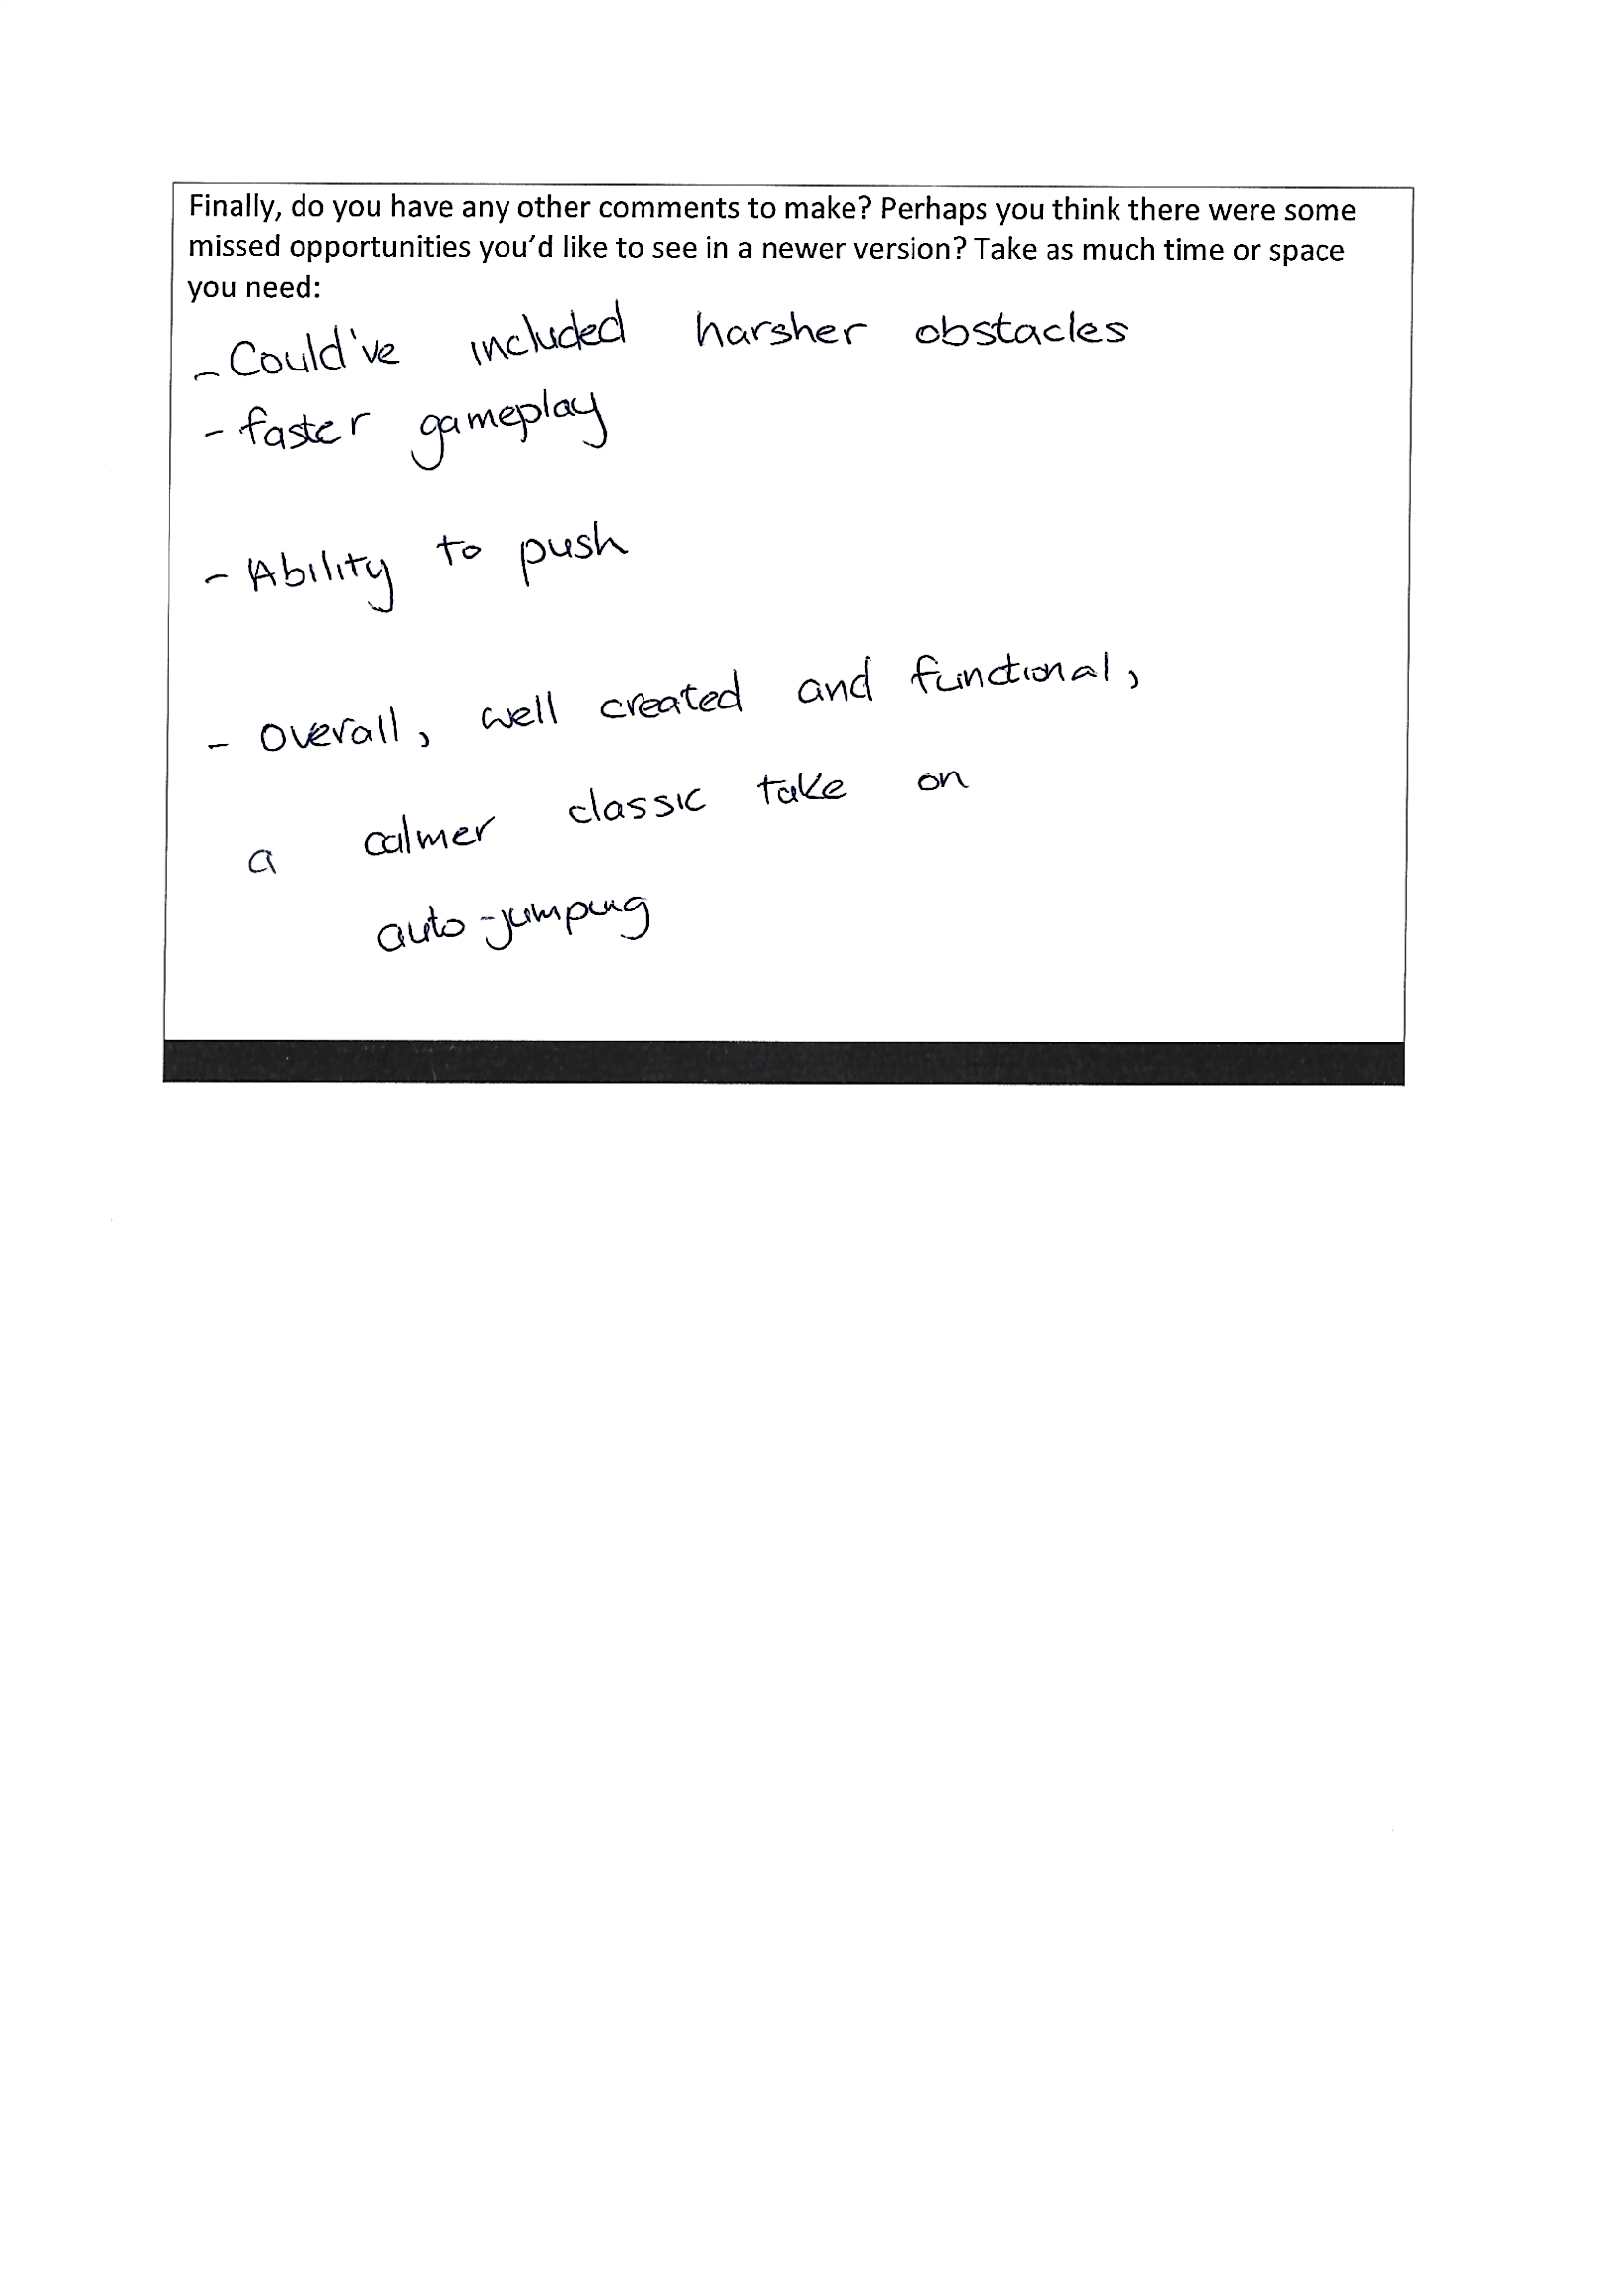 Finally, do you have any other comments to make? Perhaps you think there were some
missed opportunities you'd like to see in a newer version? Take as much time or space
you need:
- Could've included harsher obstacles
- faster gameplay
- Ability to push
- Overall, well created and functional,
a calmer classic take on
auto-jumping